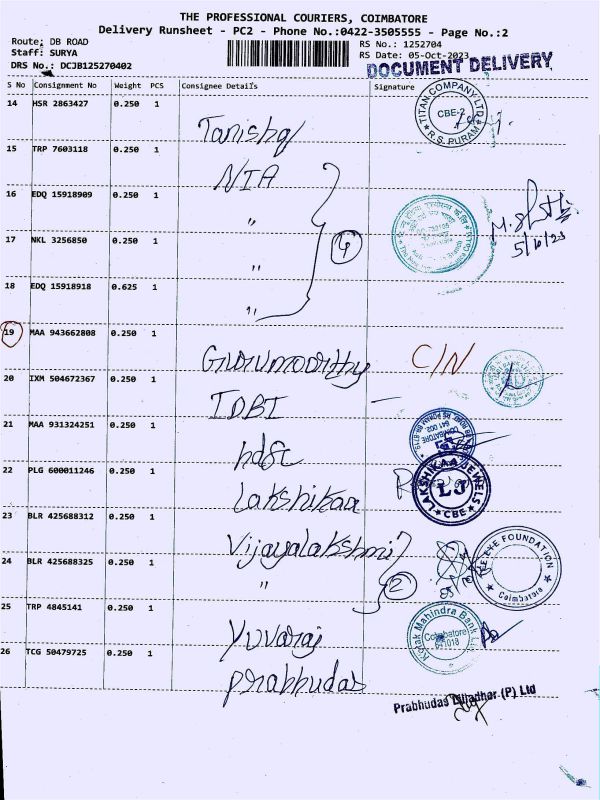 THE PROFESSIONAL COURIERS, COIMBATORE
Delivery Runsheet - PC2 - Phone No.:0422-3505555 - Page No.:2
Route: DB ROAD
Staff: SURYA
DRS No.: DCJB125270402
RS No.: 1252704
RS Date: 05-Oct-2023
DOCUMENT DELIVERY
S No Consignment No Weight PCS Consignee Details Signature
14 HSR 2863427 0.250 1 Tanishq
TITAN COMPANY LTD CBE-2 R.S. PURAM
15 TRP 7603118 0.250 1 NIA
16 EDQ 15918909 0.250 1 "
17 NKL 3256850 0.250 1 "
4
5/10/23
18 EDQ 15918918 0.625 1 "
19 MAA 943662808 0.250 1 Gurumoorthy C/N
20 IXM 504672367 0.250 1 IDBI
21 MAA 931324251 0.250 1 hdfc
COIMBATORE 641 002
22 PLG 600011246 0.250 1 Lakshikaa
LAKSHIKAA JEWELS LJ CBE
23 BLR 425688312 0.250 1 Vijayalakshmi
24 BLR 425688325 0.250 1 "
2
THE EYE FOUNDATION Coimbatore
25 TRP 4845141 0.250 1 Yuvaraj
Kotak Mahindra Bank Coimbatore 641018
26 TCG 50479725 0.250 1 Prabhudas
Prabhudas Lilladher (P) Ltd